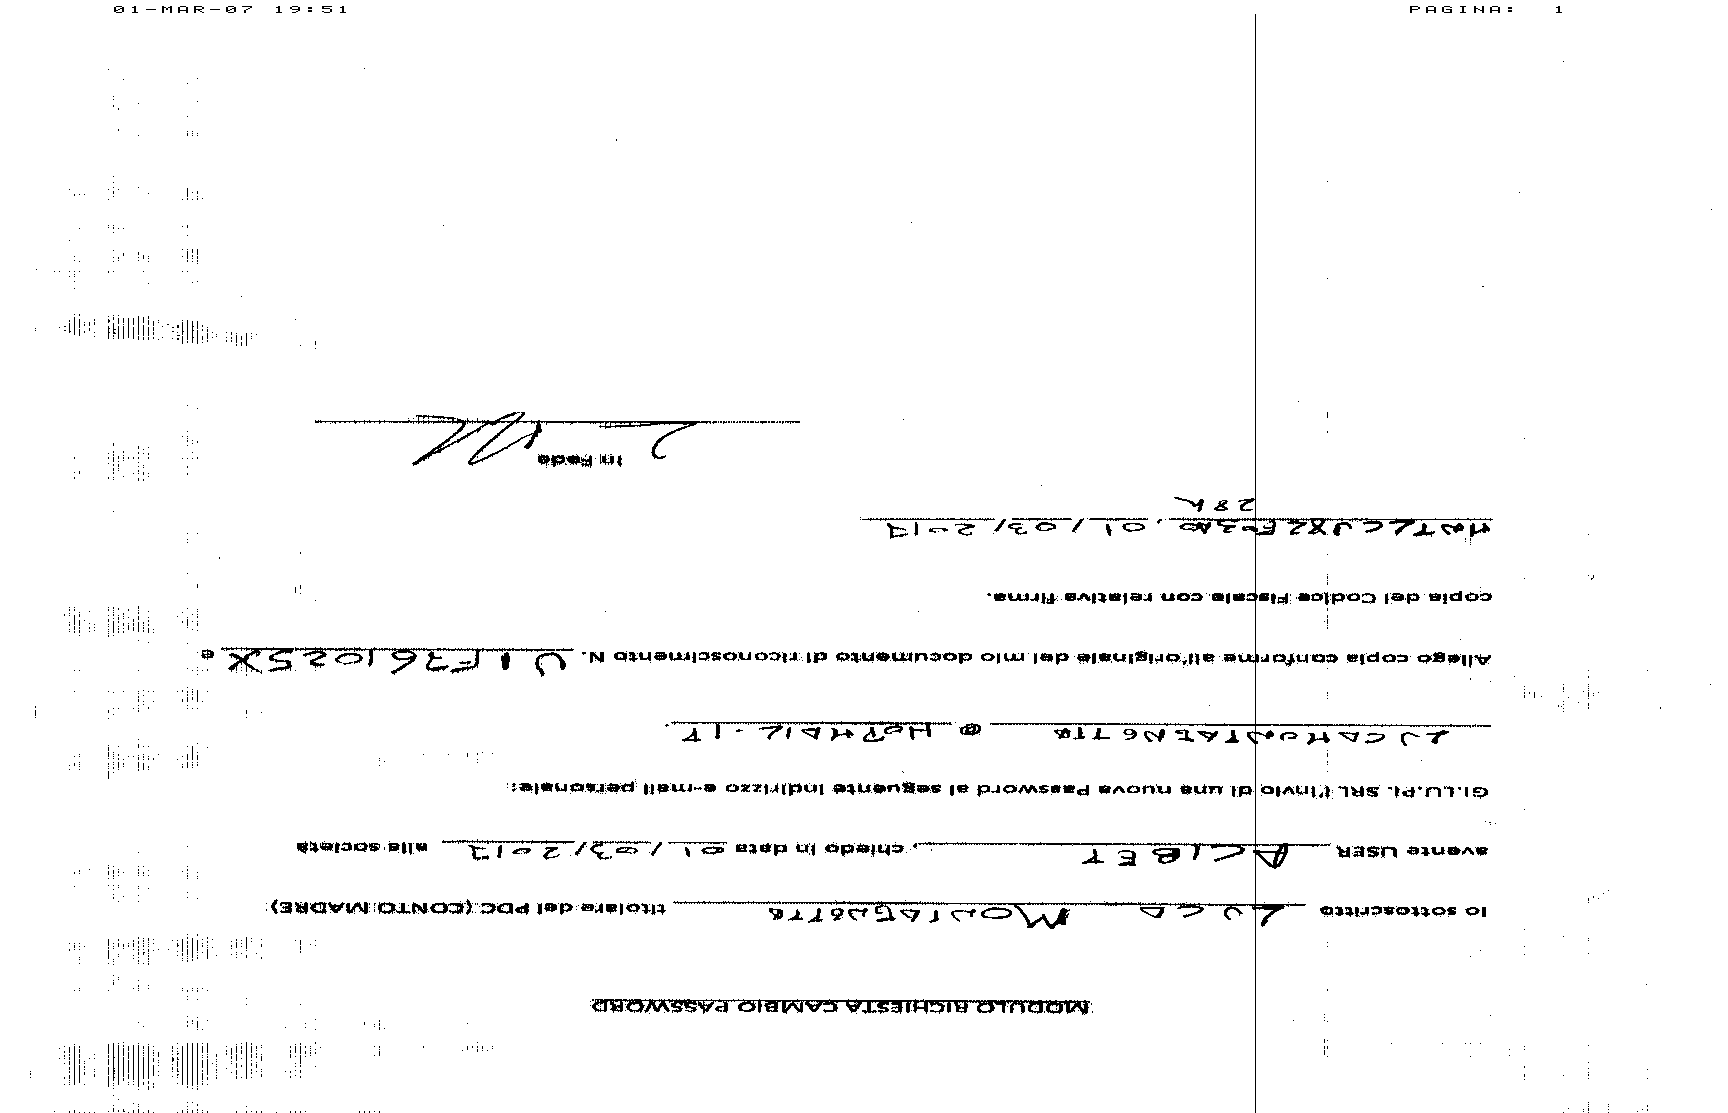 01-MAR-07 19:51 PAGINA: 1
MODULO RICHIESTA CAMBIO PASSWORD
Io sottoscritto LUCA MONTAGNOTTA titolare del PDC (CONTO MADRE)
avente USER ACIBET, chiedo in data 01/03/2017 alla società
GI.LU.PI. SRL l'invio di una nuova Password al seguente indirizzo e-mail personale:
@ HOTMAIL.IT.
Allego copia conforme all'originale del mio documento di riconoscimento N. e
copia del Codice Fiscale con relativa firma.
, 01/03/2017
In Fede